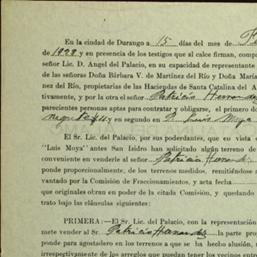 En la ciudad de Durango a 15 días del mes de
de 1928 y en presencia de los testigos que al calce firman, comp
señor Lic. D. Angel del Palacio, en su capacidad de representante
de las señoras Doña Bárbara V. de Martínez del Río y Doña María
nez del Río, propietarias de las Haciendas de Santa Catalina del A
tivamente, y por la otra el señor Patricio
parecientes personas aptas para contratar y obligarse, el primero d
en segundo en P. Luis Moya
El Sr. Lic. del Palacio, por sus poderdantes, que en vista
"Luis Moya" antes San Isidro han solicitado algún terreno de
conveniente en venderle al señor Patricio
ponde proporcionalmente, de los terrenos medidos, remitiéndose
vantado por la Comisión de Fraccionamientos, y acta fecha
que originales obran en poder de la citada Comisión, y quedando
trato bajo las cláusulas siguientes:
PRIMERA:—El Sr. Lic. del Palacio, con la representación
mete vender al Sr. Patricio la parte pro
ponde para agostadero en los terrenos a que se ha hecho alusión,
irrespectivamente de los arreglos que puedan tener los vecinos entre